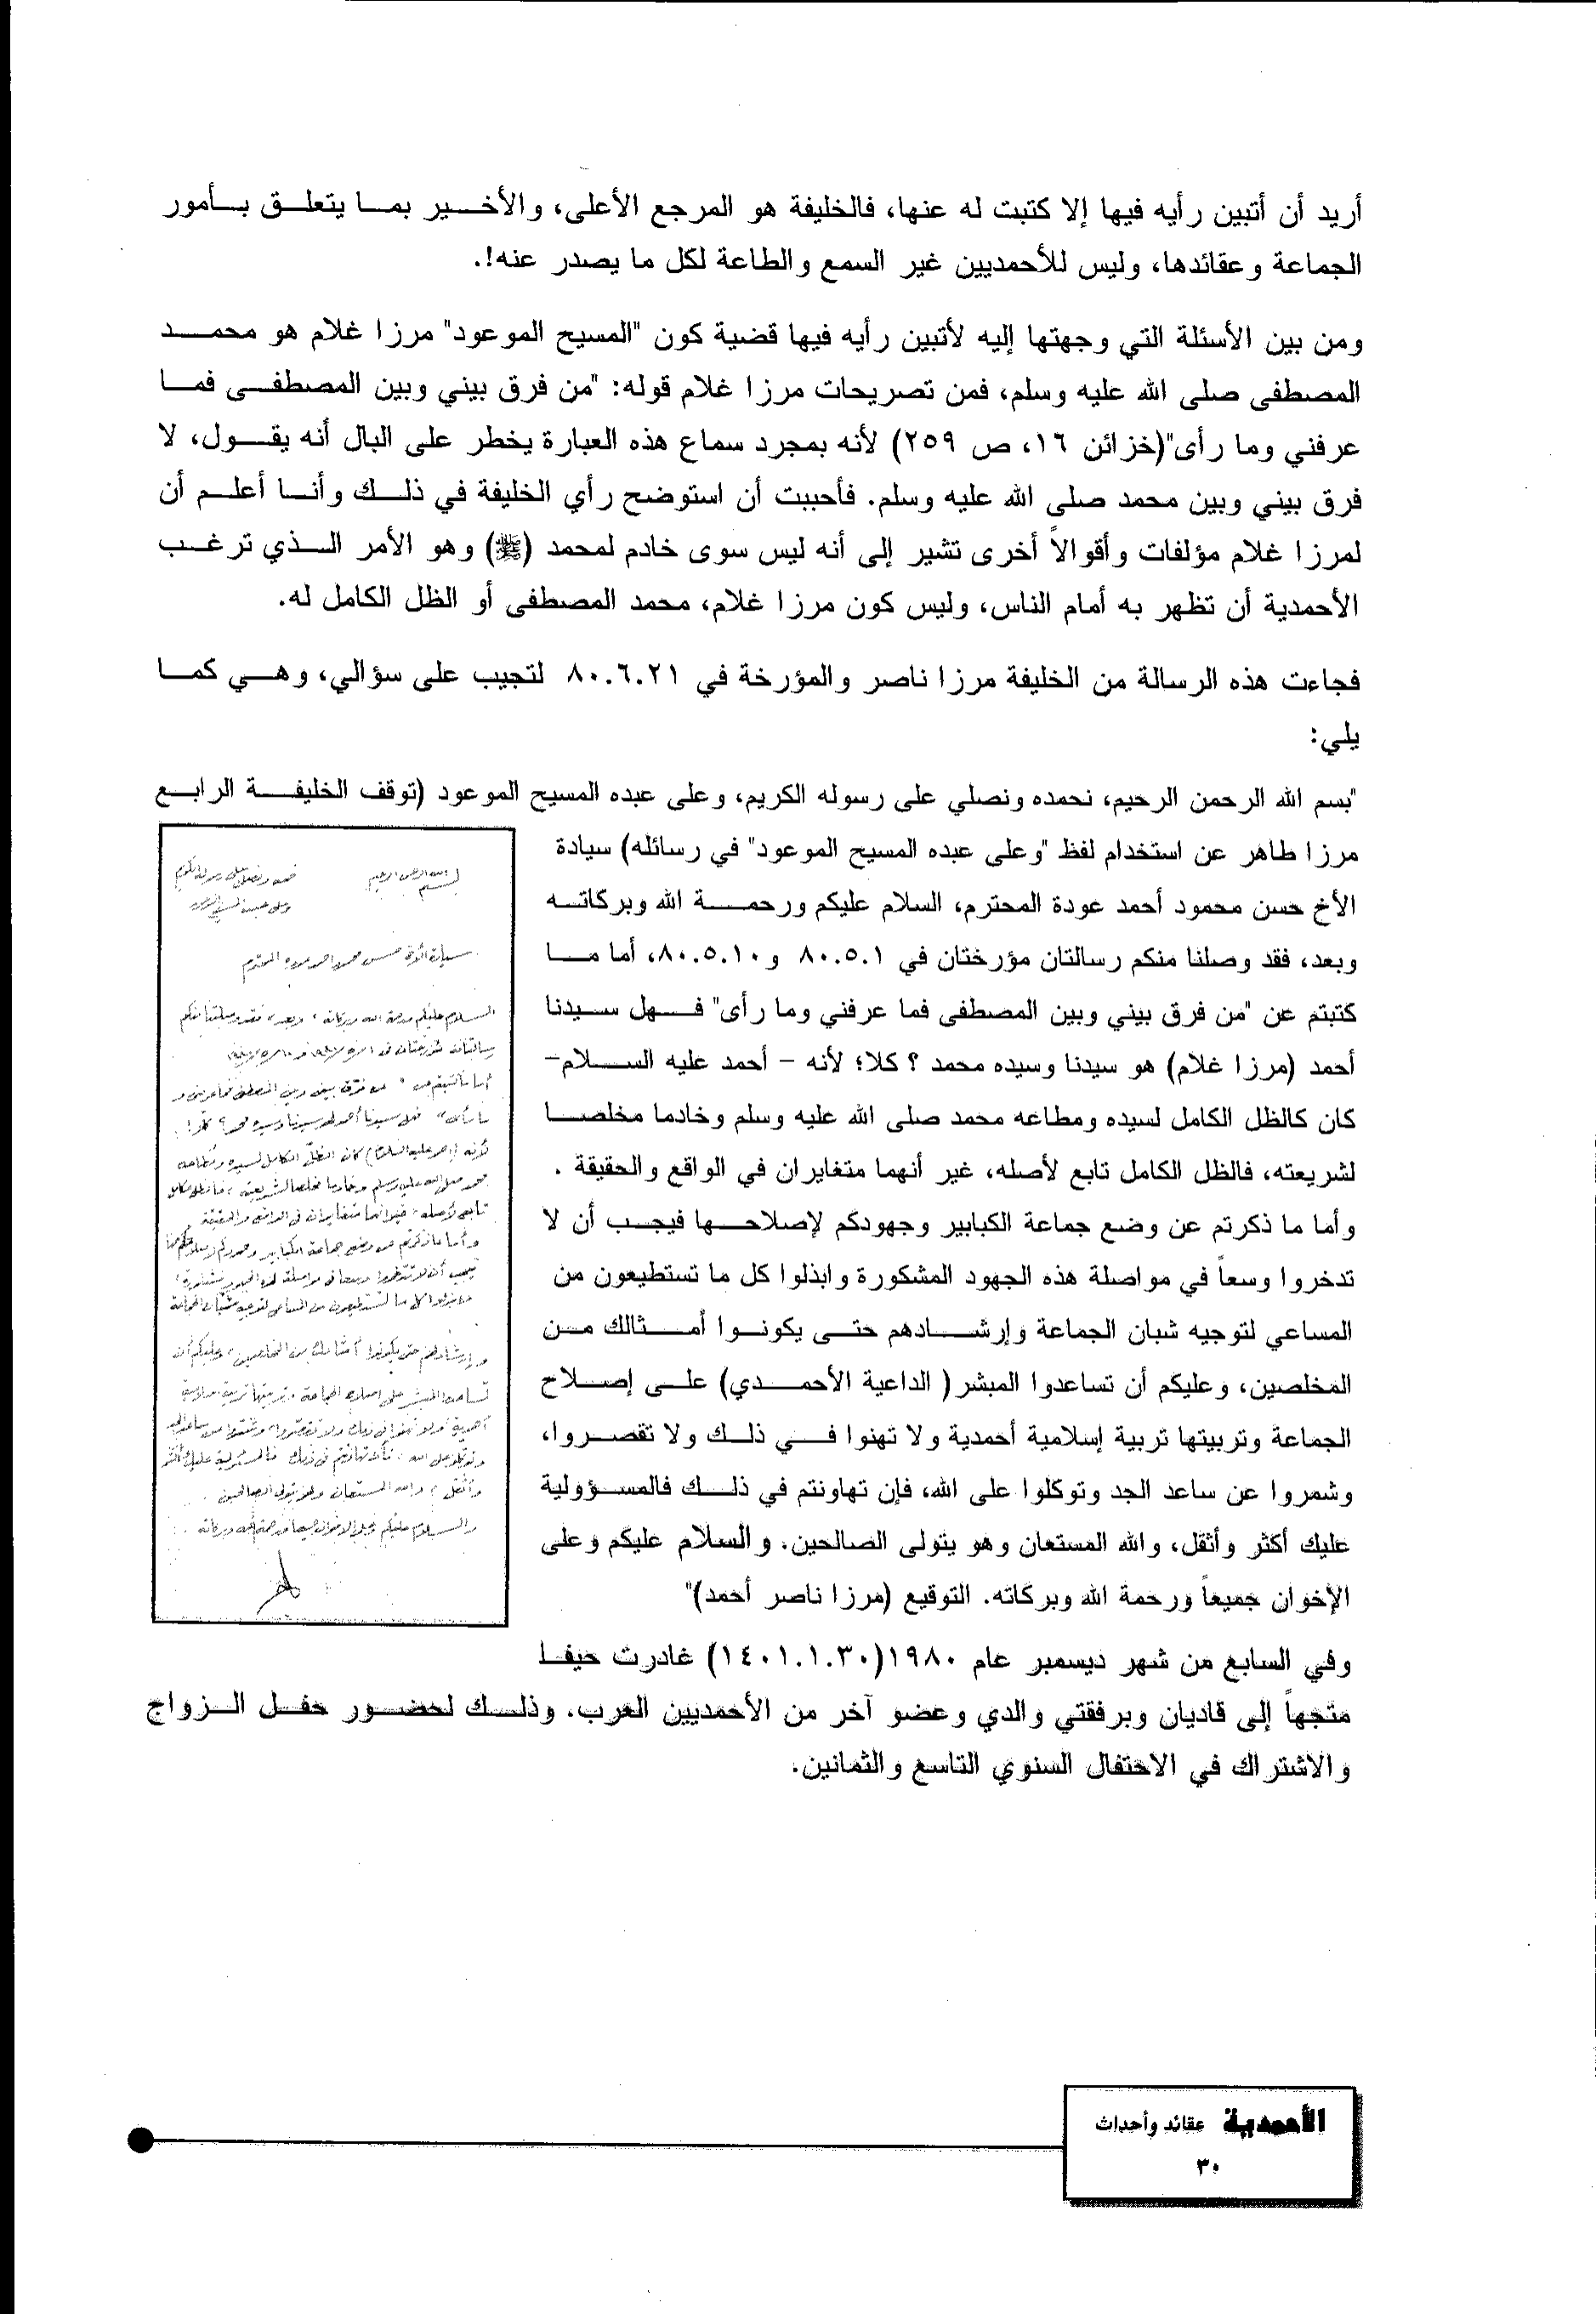 أريد أن أتبين رأيه فيها إلا كتبت له عنها، فالخليفة هو المرجع الأعلى، والأخير بما يتعلق بأمور
الجماعة وعقائدها، وليس للأحمديين غير السمع والطاعة لكل ما يصدر عنه!.
ومن بين الأسئلة التي وجهتها إليه لأتبين رأيه فيها قضية كون "المسيح الموعود" مرزا غلام هو محمد
المصطفى صلى الله عليه وسلم، فمن تصريحات مرزا غلام قوله: "من فرق بيني وبين المصطفى فما
عرفني وما رأى"(خزائن ١٦، ص ٢٥٩) لأنه بمجرد سماع هذه العبارة يخطر على البال أنه يقول، لا
فرق بيني وبين محمد صلى الله عليه وسلم. فأحببت أن استوضح رأي الخليفة في ذلك وأنا أعلم أن
لمرزا غلام مؤلفات وأقوالاً أخرى تشير إلى أنه ليس سوى خادم لمحمد (ﷺ) وهو الأمر الذي ترغب
الأحمدية أن تظهر به أمام الناس، وليس كون مرزا غلام، محمد المصطفى أو الظل الكامل له.
فجاءت هذه الرسالة من الخليفة مرزا ناصر والمؤرخة في ٨٠.٦.٢١ لتجيب على سؤالي، وهي كما
يلي:
"بسم الله الرحمن الرحيم، نحمده ونصلي على رسوله الكريم، وعلى عبده المسيح الموعود (توقف الخليفة الرابع
مرزا طاهر عن استخدام لفظ "وعلى عبده المسيح الموعود" في رسائله) سيادة
الأخ حسن محمود أحمد عودة المحترم، السلام عليكم ورحمة الله وبركاته
وبعد، فقد وصلنا منكم رسالتان مؤرختان في ٨٠.٥.١ و٨٠.٥.١٠، أما ما
كتبتم عن "من فرق بيني وبين المصطفى فما عرفني وما رأى" فهل سيدنا
أحمد (مرزا غلام) هو سيدنا وسيده محمد ؟ كلا؛ لأنه – أحمد عليه السلام–
كان كالظل الكامل لسيده ومطاعه محمد صلى الله عليه وسلم وخادما مخلصا
لشريعته، فالظل الكامل تابع لأصله، غير أنهما متغايران في الواقع والحقيقة .
وأما ما ذكرتم عن وضع جماعة الكبابير وجهودكم لإصلاحها فيجب أن لا
تدخروا وسعاً في مواصلة هذه الجهود المشكورة وابذلوا كل ما تستطيعون من
المساعي لتوجيه شبان الجماعة وإرشادهم حتى يكونوا أمثالك من
المخلصين، وعليكم أن تساعدوا المبشر ( الداعية الأحمدي) على إصلاح
الجماعة وتربيتها تربية إسلامية أحمدية ولا تهنوا في ذلك ولا تقصروا،
وشمروا عن ساعد الجد وتوكلوا على الله، فإن تهاونتم في ذلك فالمسؤولية
عليك أكثر وأثقل، والله المستعان وهو يتولى الصالحين. والسلام عليكم وعلى
الإخوان جميعاً ورحمة الله وبركاته. التوقيع (مرزا ناصر أحمد)"
وفي السابع من شهر ديسمبر عام ١٩٨٠(١٤٠١.١.٣٠) غادرت حيفا
متجهاً إلى قاديان وبرفقتي والدي وعضو آخر من الأحمديين العرب. وذلك لحضور حفل الزواج
والاشتراك في الاحتفال السنوي التاسع والثمانين.
الأحمدية عقائد وأحداث
٣٠